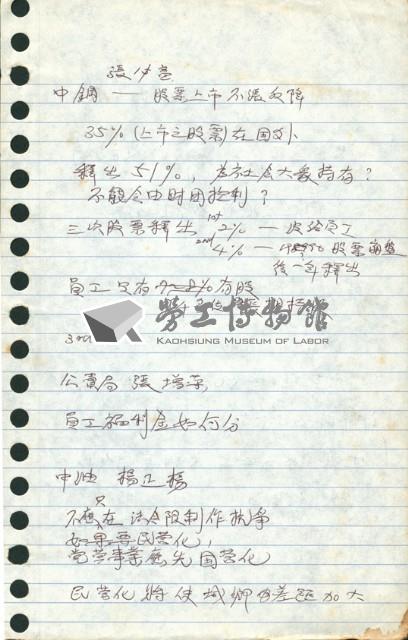 張仲
中鋼 — 股票上市不漲反降
35% (上市之股票)在国外
釋出51%, 為社会大衆持有?
不能令中时团控制?
三次股票釋出 1st 2% — 波給員工
2nd 4% — 股票崩盤
後一年釋出
員工只有 有股
勞工博物館
KAOHSIUNG MUSEUM OF LABOR
3rd
公賣局 張增
員工福利金如何分
中油 楊正
不應只在法令限制作抗爭
如果要民营化,
党营事業應先国营化
民营化將使城鄉的差距加大